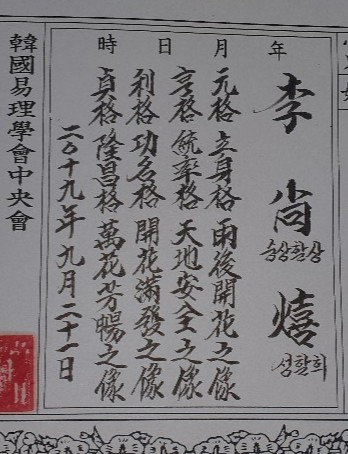 年 月 日 時
李 尙 熺
숭상할상
성할희
元格 立身格 雨後開花之像
亨格 統率格 天地安全之像
利格 功名格 開花滿發之像
貞格 隆昌格 萬花芳暢之像
二〇十九年 九月二十一日
韓國易理學會中央會